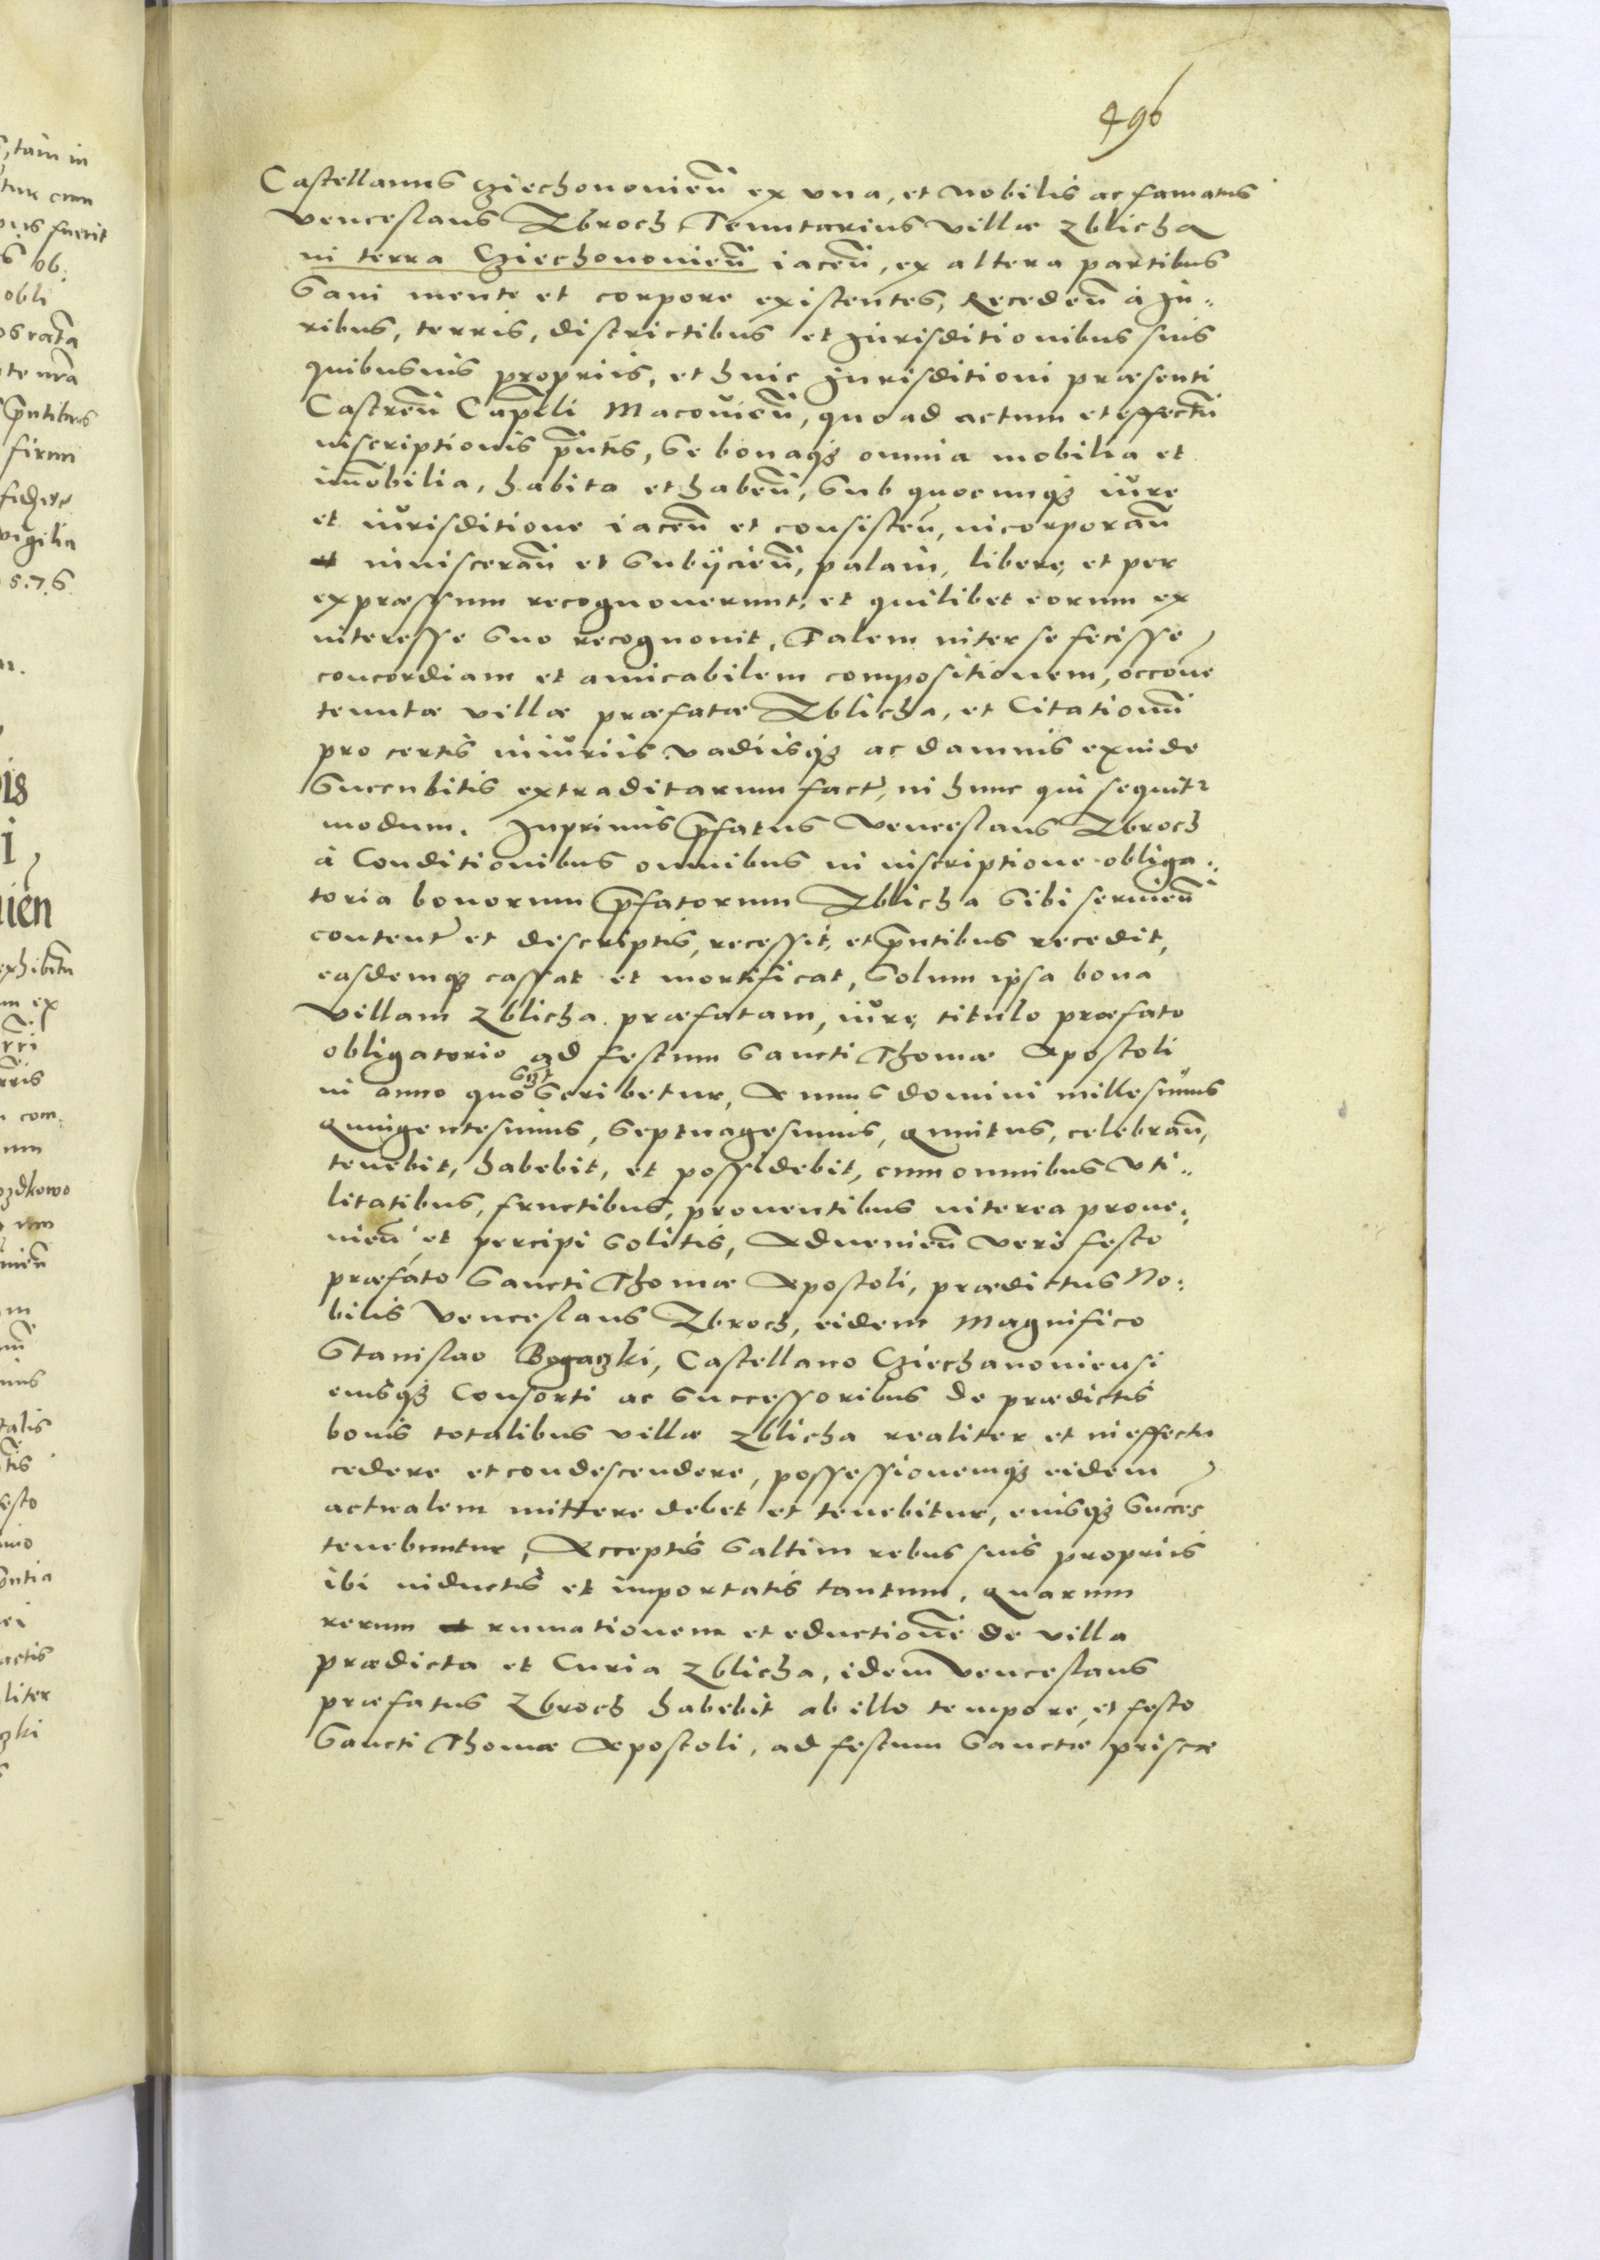 496
Castellanus Cziechonouien̄ ex vna, et Nobilis ac famatus
venceslaus Zbroch Tenutarius villæ Zblicha
in terra Cziechonouien̄ iacen̄, ex altera partibus
Sani mente et corpore existentes, Receden̄ à Iu-
ribus, terris, districtibus et Jurisditionibus suis
quibusuis propriis, et huic Jurisditioni præsenti
Castren̄ Cap̄li Macouien̄, quo ad actum et effectū
inscriptionis p̄ntis, Se bonaq; omnia mobilia et
im̄obilia, habita et haben̄, Sub quocunq; iure
et iurisditione iacen̄ et consisten̄, incorporan̄
inuisceran̄ et Subijcien̄, palam, libere, et per
expræssum recognouerunt, et quilibet eorum ex
interesse Suo recognouit, Talem inter se fecisse
concordiam et amicabilem compositionem, occōne
tenutæ villæ præfatæ Zblicha, et Citationū
pro certis iniuriis vadiisq; ac damnis exinde
Succubitis extraditarum fact', in hunc qui sequit'
modum. Inprimis p̄fatus Venceslaus Zbroch
à Conditionibus omnibus in inscriptione obliga-
toria bonorum p̄fatorum Zblicha Sibi seruien̄
content' et descriptis, recessit, et p̄ntibus recedit,
easdemq; cassat et mortificat, Solum ipsa bona
Villam Zblicha præfatam, iure, titulo præfato
obligatorio ad festum Sancti Thomæ Apostoli
in anno quo Scribetur, Annus domini millesimus
Quingentesimus, Septuagesimus, Quintus, celebran̄,
tenebit, habebit, et possidebit, cum omnibus vti-
litatibus, fructibus, prouentibus interea proue-
nien̄, et percipi Solitis, Aduenien̄ vero festo
præfato Sancti Thomæ Apostoli, prædictus No-
bilis Venceslaus Zbroch, eidem Magnifico
Stanislao Bogaczki, Castellano Cziechanouiensi
eiusq; Consorti ac Successoribus de prædictis
bonis totalibus villæ Zblicha realiter et in effectu
cedere et condescendere, possessionemq; eidem
actualem mittere debet et tenebitur, eiusq; Succes
tenebuntur, Acceptis Saltim rebus suis propriis
ibi inductis et importatis tantum, Quarum
rerum rumationem et eductionē de villa
prædicta et Curia Zblicha, idem Venceslaus
præfatus Zbroch habebit ab illo tempore, et festo
Sancti Thomæ Apostoli, ad festum Sanctæ priscæ